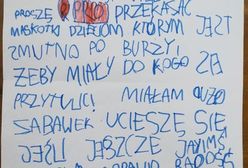 PROSZĘ PRZEKAZAĆ
MASKOTKI DZIECIOM KTÓRYM JEST
SMUTNO PO BURZY!
ŻEBY MIAŁY DO KOGO SIĘ
PRZYTULIĆ! MIAŁAM DUŻO
ZABAWEK UCIESZĘ SIĘ
JEŚLI JESZCZE JAKIMŚ
RADOŚĆ